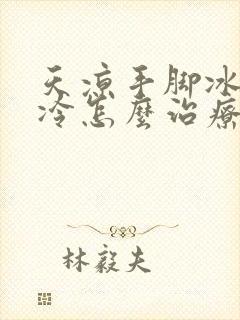 天涼手脚冰
冷怎麼治療
林毅夫